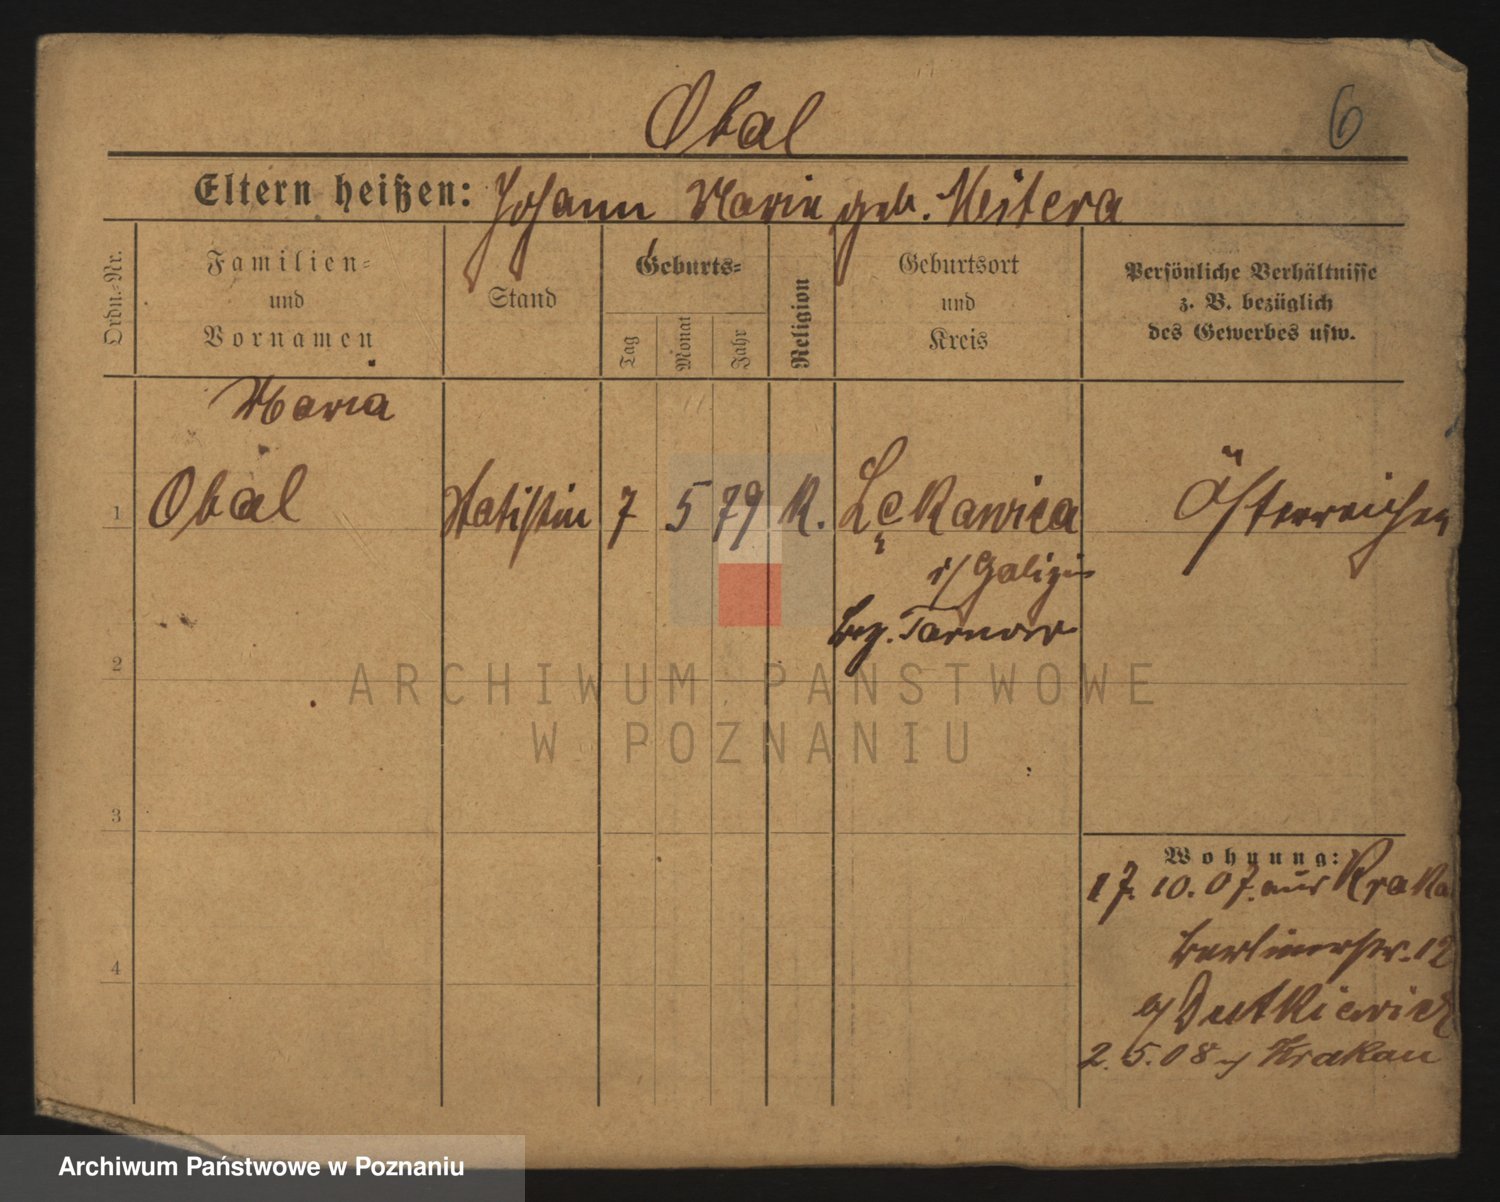 6
Obal
Eltern heißen: Johann Marie geb. Meitera
Ordn.-Nr.
Familien-
und
Vornamen
Stand
Geburts-
Tag
Monat
Jahr
Religion
Geburtsort
und
Kreis
Persönliche Verhältnisse
z. B. bezüglich
des Gewerbes usw.
Maria
1 Obal Statistin 7 5 79 K. Łękawica Österreicher
i/ Galizien
bez. Tarnow
2
3
4
Wohnung:
17.10.07. aus Kraka
Berlinerstr. 12
b/ Dutkiewicz
2.5.08 n/ Krakau
ARCHIWUM PAŃSTWOWE
W POZNANIU
Archiwum Państwowe w Poznaniu